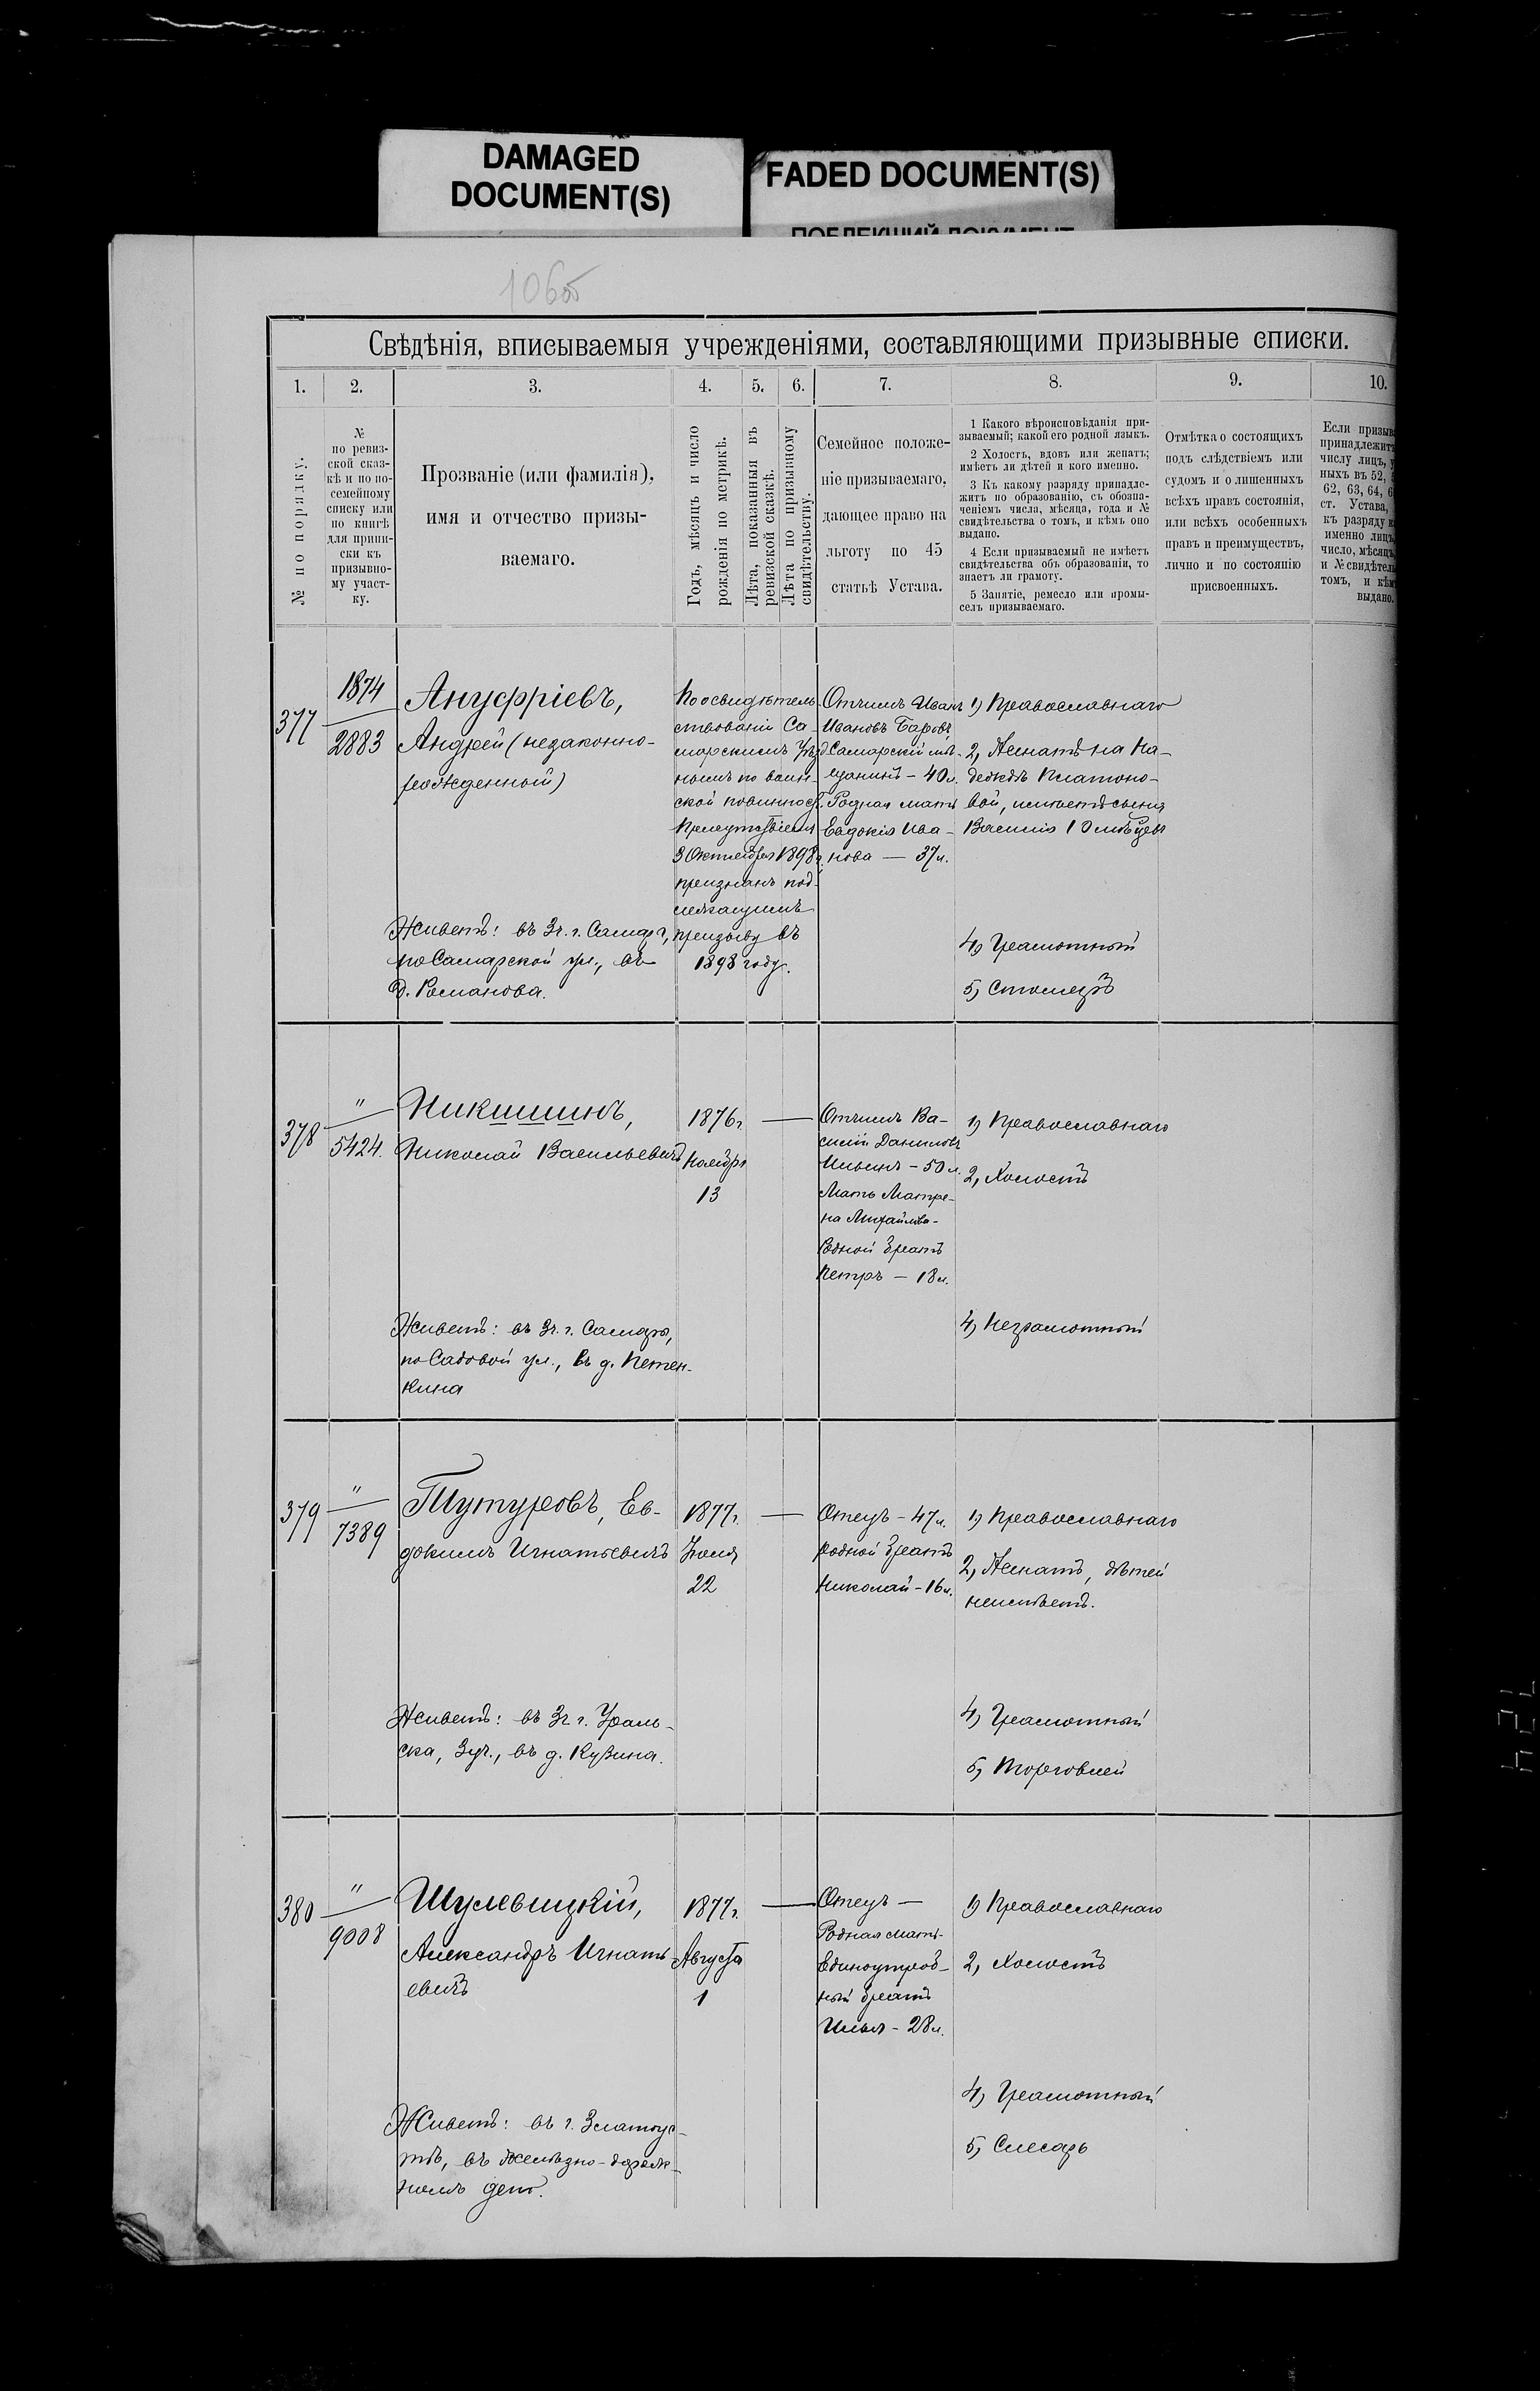 DAMAGED
DOCUMENT(S)
FADED DOCUMENT(S)
ПОБЛЕКШИЙ ДОКУМЕНТ
Свѣдѣнія, вписываемыя учрежденіями, составляющими призывные списки.
1.
2.
3.
4.
5.
6.
7.
8.
9.
10.
№ по порядку.
№
по ревиз-
ской сказ-
кѣ и по по-
семейному
списку или
по книгѣ
для припи-
ски къ
призывно-
му участ-
ку.
Прозваніе (или фамилія),
имя и отчество призы-
ваемаго.
Годъ, мѣсяцъ и число
рожденія по метрикѣ.
Лѣта, показанныя въ
ревизской сказкѣ.
Лѣта по призывному
свидѣтельству.
Семейное положе-
ніе призываемаго,
дающее право на
льготу по 45
статьѣ Устава.
1 Какого вѣроисповѣданія при-
зываемый; какой его родной языкъ.
2 Холостъ, вдовъ или женатъ;
имѣетъ ли дѣтей и кого именно.
3 Къ какому разряду принадле-
житъ по образованію, съ обозна-
ченіемъ числа, мѣсяца, года и №
свидѣтельства о томъ, и кѣмъ оно
выдано.
4 Если призываемый не имѣетъ
свидѣтельства объ образованіи, то
знаетъ ли грамоту.
5 Занятіе, ремесло или промы-
селъ призываемаго.
Отмѣтка о состоящихъ
подъ слѣдствіемъ или
судомъ и о лишенныхъ
всѣхъ правъ состоянія,
или всѣхъ особенныхъ
правъ и преимуществъ,
лично и по состоянію
присвоенныхъ.
Если призыв
принадлежитъ
числу лицъ, у
ныхъ въ 52,
62, 63, 64, 6
ст. Устава,
къ разряду к
именно лицъ,
число, мѣсяцъ,
и № свидѣтель
томъ, и кѣм
выдано.
377
1874
2883
Ануфріевъ,
Андрей (незаконно-
рожденный)
Живетъ: въ 3ч. г. Самары,
по Самарской ул., въ
д. Романова.
По освидѣтель
ствованіи Са-
марскимъ Уѣзд
нымъ по воин-
ской повинност.
Присутствіемъ
3 Октября 1898 г.
признанъ под-
лежащимъ
призыву въ
1898 году.
Отчимъ Иванъ
Ивановъ Баровъ,
Самарскій мѣ-
щанинъ - 40л.
Родная мать
Евдокія Ива-
нова — 37л.
1) Православнаго
2) Женатъ на На-
деждѣ Платоно-
вой, имѣетъ сына
Василія 10 мѣсяцевъ
4) Грамотный
5) Столяръ
378
"
5424.
Никишинъ,
Николай Васильевичъ
Живетъ: въ 3ч. г. Самары,
по Садовой ул., въ д. Петен-
кина
1876г.
Ноября
13
Отчимъ Ва-
силій Даниловъ
Ильинъ - 50л.
Мать Матре-
на Михайлова-
Родной братъ
Петръ — 18л.
1) Православнаго
2) Холостъ
4) Неграмотный
379
"
7389
Тутуровъ, Ев-
докимъ Игнатьевичъ
Живетъ: въ 3ч. г. Ураль-
ска, 3уч., въ д. Кузина.
1877г.
Іюля
22
Отецъ - 47л.
родной братъ
Николай - 16л.
1) Православнаго
2) Женатъ, дѣтей
неимѣетъ.
4) Грамотный
5) Торговлей
380
"
9008
Шулевицкій,
Александръ Игнать-
евичъ
Живетъ: въ г. Златоус-
тѣ, въ желѣзно-дорож-
номъ депо.
1877г.
Августа
1
Отецъ —
Родная мать-
Единоутроб-
ный братъ
Илья - 28л.
1) Православнаго
2) Холостъ
4) Грамотный
5) Слесарь